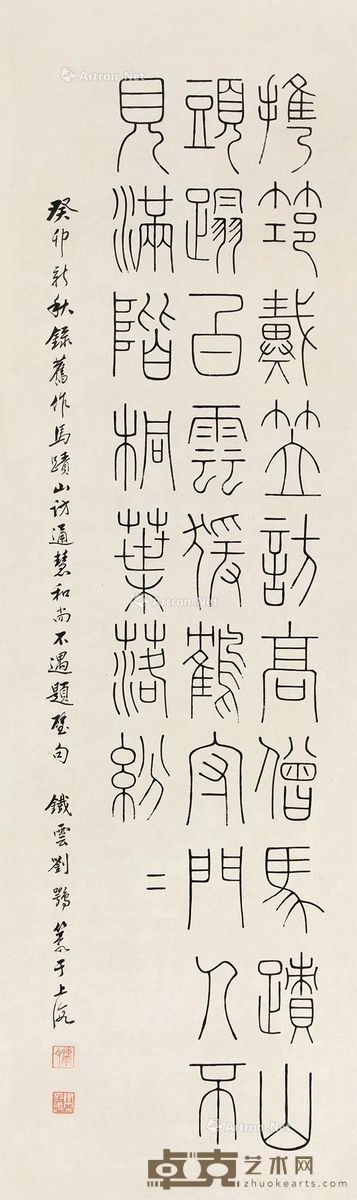 攜筇戴笠訪高僧馬蹟山
頭蹋白雲猨鶴守門人不
見滿階桐葉落紛二
癸卯新秋錄舊作馬蹟山訪通慧和尚不遇題壁句 鐵雲劉鶚篆于上海
Artron.Net
Artron.Net
Artron.Net
Artron.Net
卓克艺术网
www.zhuokearts.com